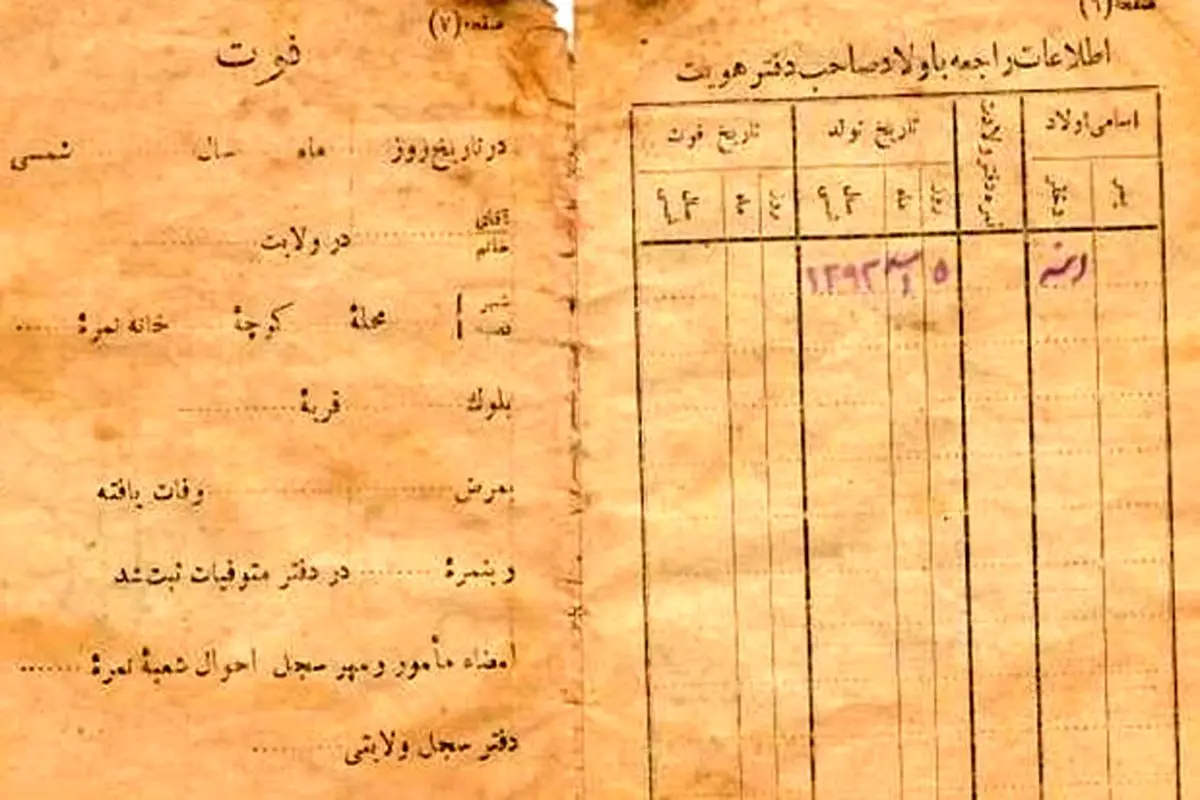 صفحه (۶)
اطلاعات راجعه باولاد صاحب دفتر هویت
اسامی اولاد
نمره دفتر ولادت
تاریخ تولد
تاریخ فوت
پسر
دختر
روز
ماه
سال شمسی
روز
ماه
سال شمسی
۵
۱۲۹۲
صفحه (۷)
فوت
در تاریخ روز ماه سال شمسی
آقای
خانم
در ولایت
شهر
قصبه
محلهٔ کوچهٔ خانه نمرهٔ ....
بلوک قریهٔ
بمرض وفات یافته
و بنمرهٔ در دفتر متوفیات ثبت شد
امضاء مأمور و مهر سجل احوال شعبهٔ نمرهٔ .......
دفتر سجل ولایتی ........